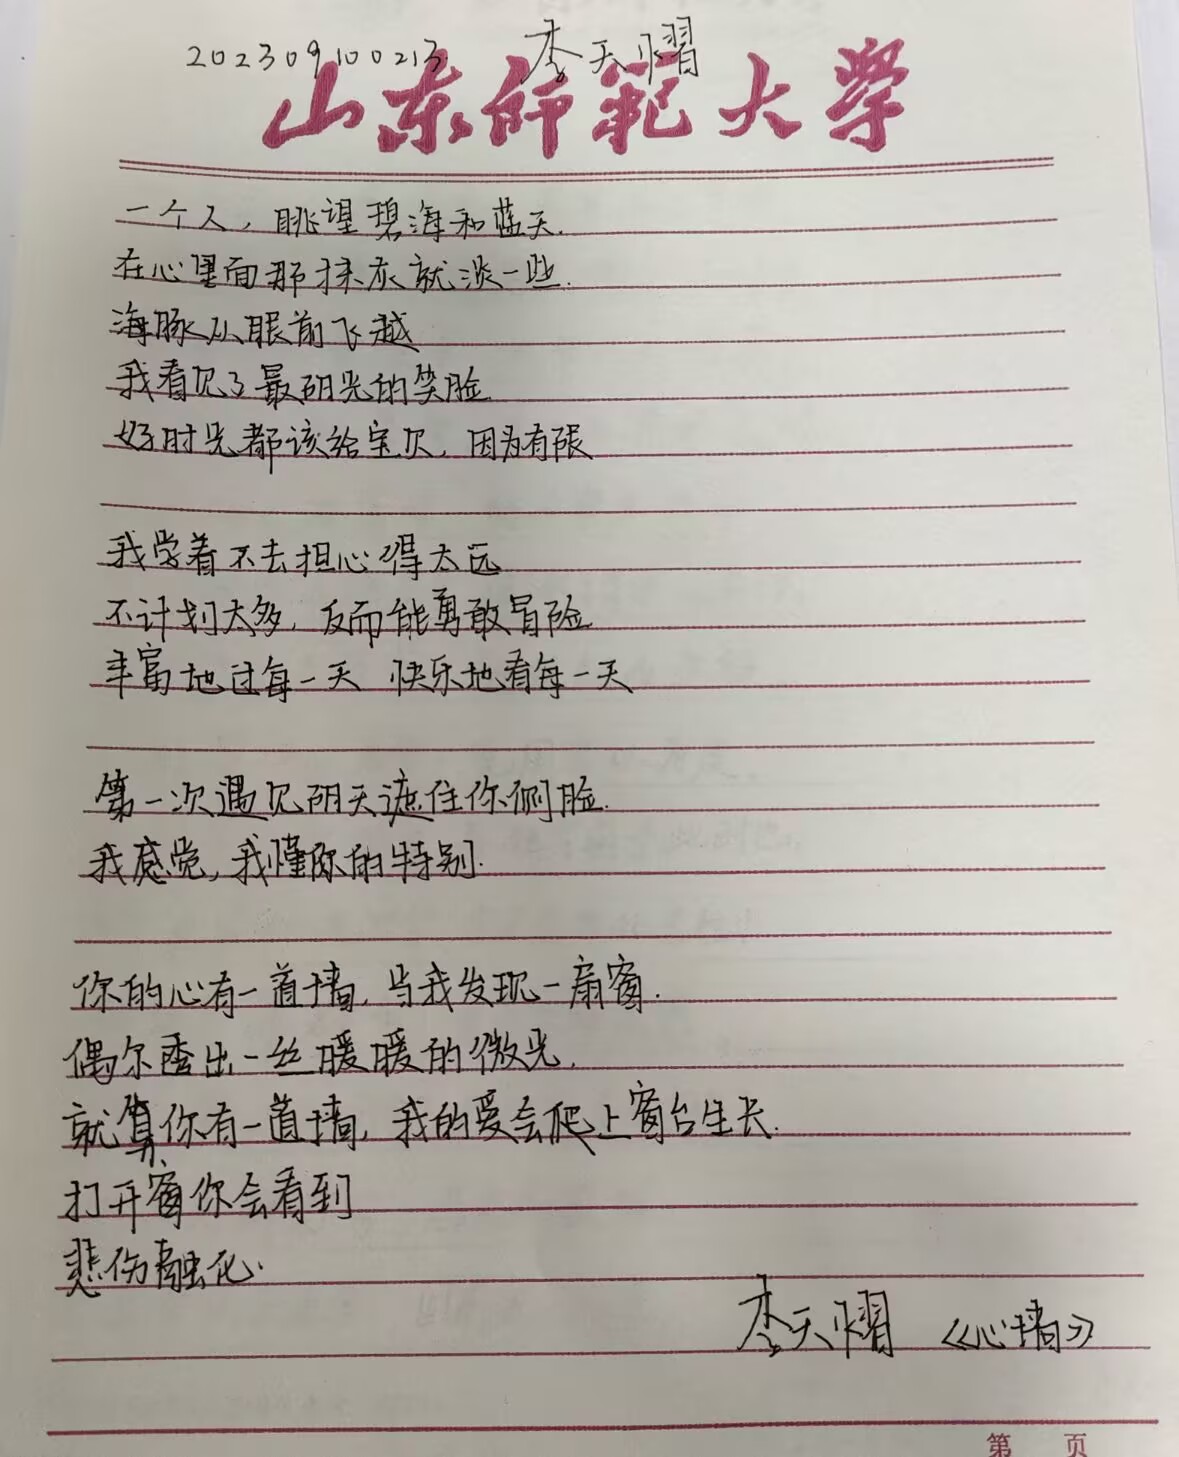 202309100213 李天熠
山东师范大学
一个人，眺望碧海和蓝天.
在心里面那抹灰就淡一些.
海豚从眼前飞越
我看见了最阴光的笑脸
好时光都该给宝贝，因为有限
我学着不去担心得太远
不计划太多，反而能勇敢冒险
丰富地过每一天 快乐地看每一天
第一次遇见阴天遮住你侧脸.
我感觉，我懂你的特别.
你的心有一道墙，当我发现一扇窗.
偶尔透出一丝暖暖的微光.
就算你有一道墙，我的爱会爬上窗台生长.
打开窗你会看到
悲伤融化.
李天熠 《心墙》
第 页